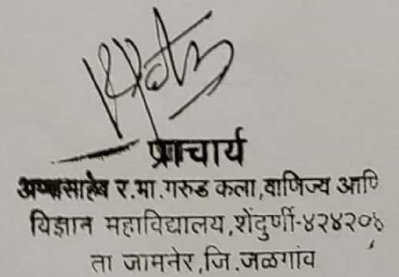 प्राचार्य
अप्पासाहेब र.भा.गरुड कला,वाणिज्य आणि
विज्ञान महाविद्यालय,शेंदुर्णी-४२४२०४
ता जामनेर,जि.जळगांव